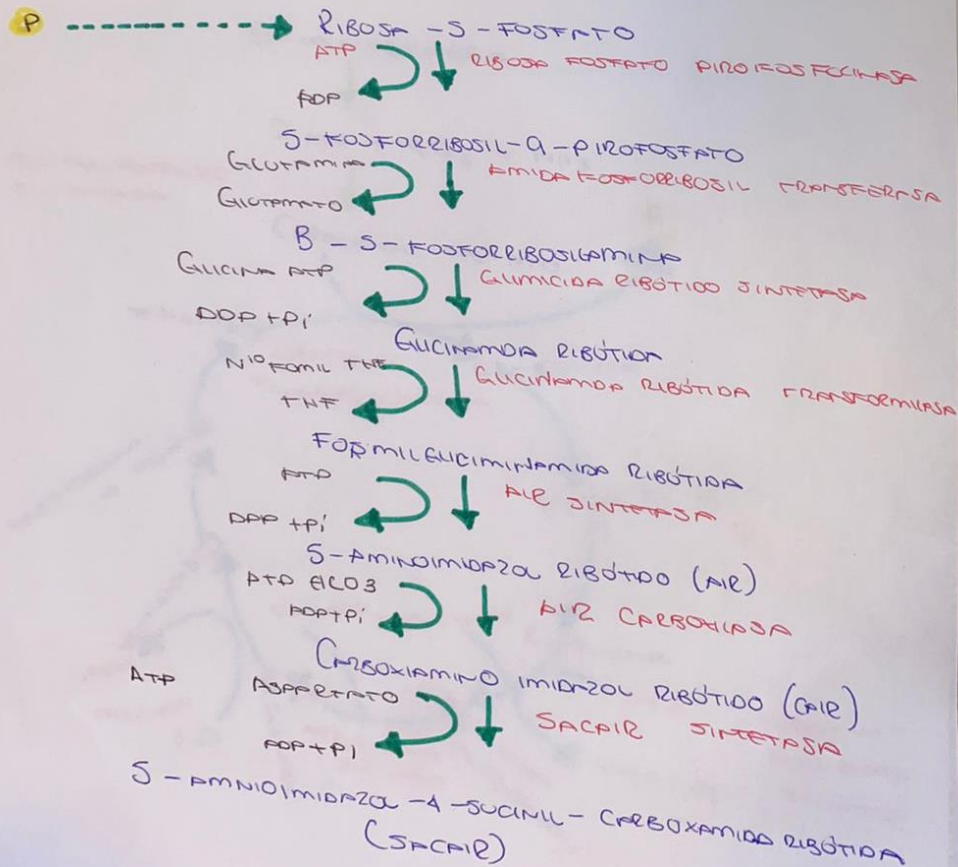 P RIBOSA - 5 - FOSFATO
ATP RIBOSA FOSFATO PIROFOSFOCINASA
ADP
5-FOSFORRIBOSIL-α-PIROFOSFATO
GLUTAMINA AMIDA FOSFORRIBOSIL TRANSFERASA
GLUTAMATO
B - 5 - FOSFORRIBOSILAMINA
GLICINA ATP GLIMICIDA RIBÓTIDO SINTETASA
DDP + Pi
GLICINAMDA RIBÓTIDA
N10 FOMIL THF GLICINAMDA RIBÓTIDA TRANSFORMILASA
THF
FORMILGLICIMINAMIDA RIBÓTIDA
ATP AIR SINTETASA
DAP + Pi
5-AMINOIMIDAZOL RIBÓTIDO (AIR)
ATP HCO3 AIR CARBOXILASA
ADP+Pi
CARBOXIAMINO IMIDAZOL RIBÓTIDO (CAIR)
ATP ASPARTATO SACAIR SINTETASA
ADP+Pi
5-AMNIOIMIDAZOL-4-SUCINIL-CARBOXAMIDA RIBÓTIDA
(SACAIR)